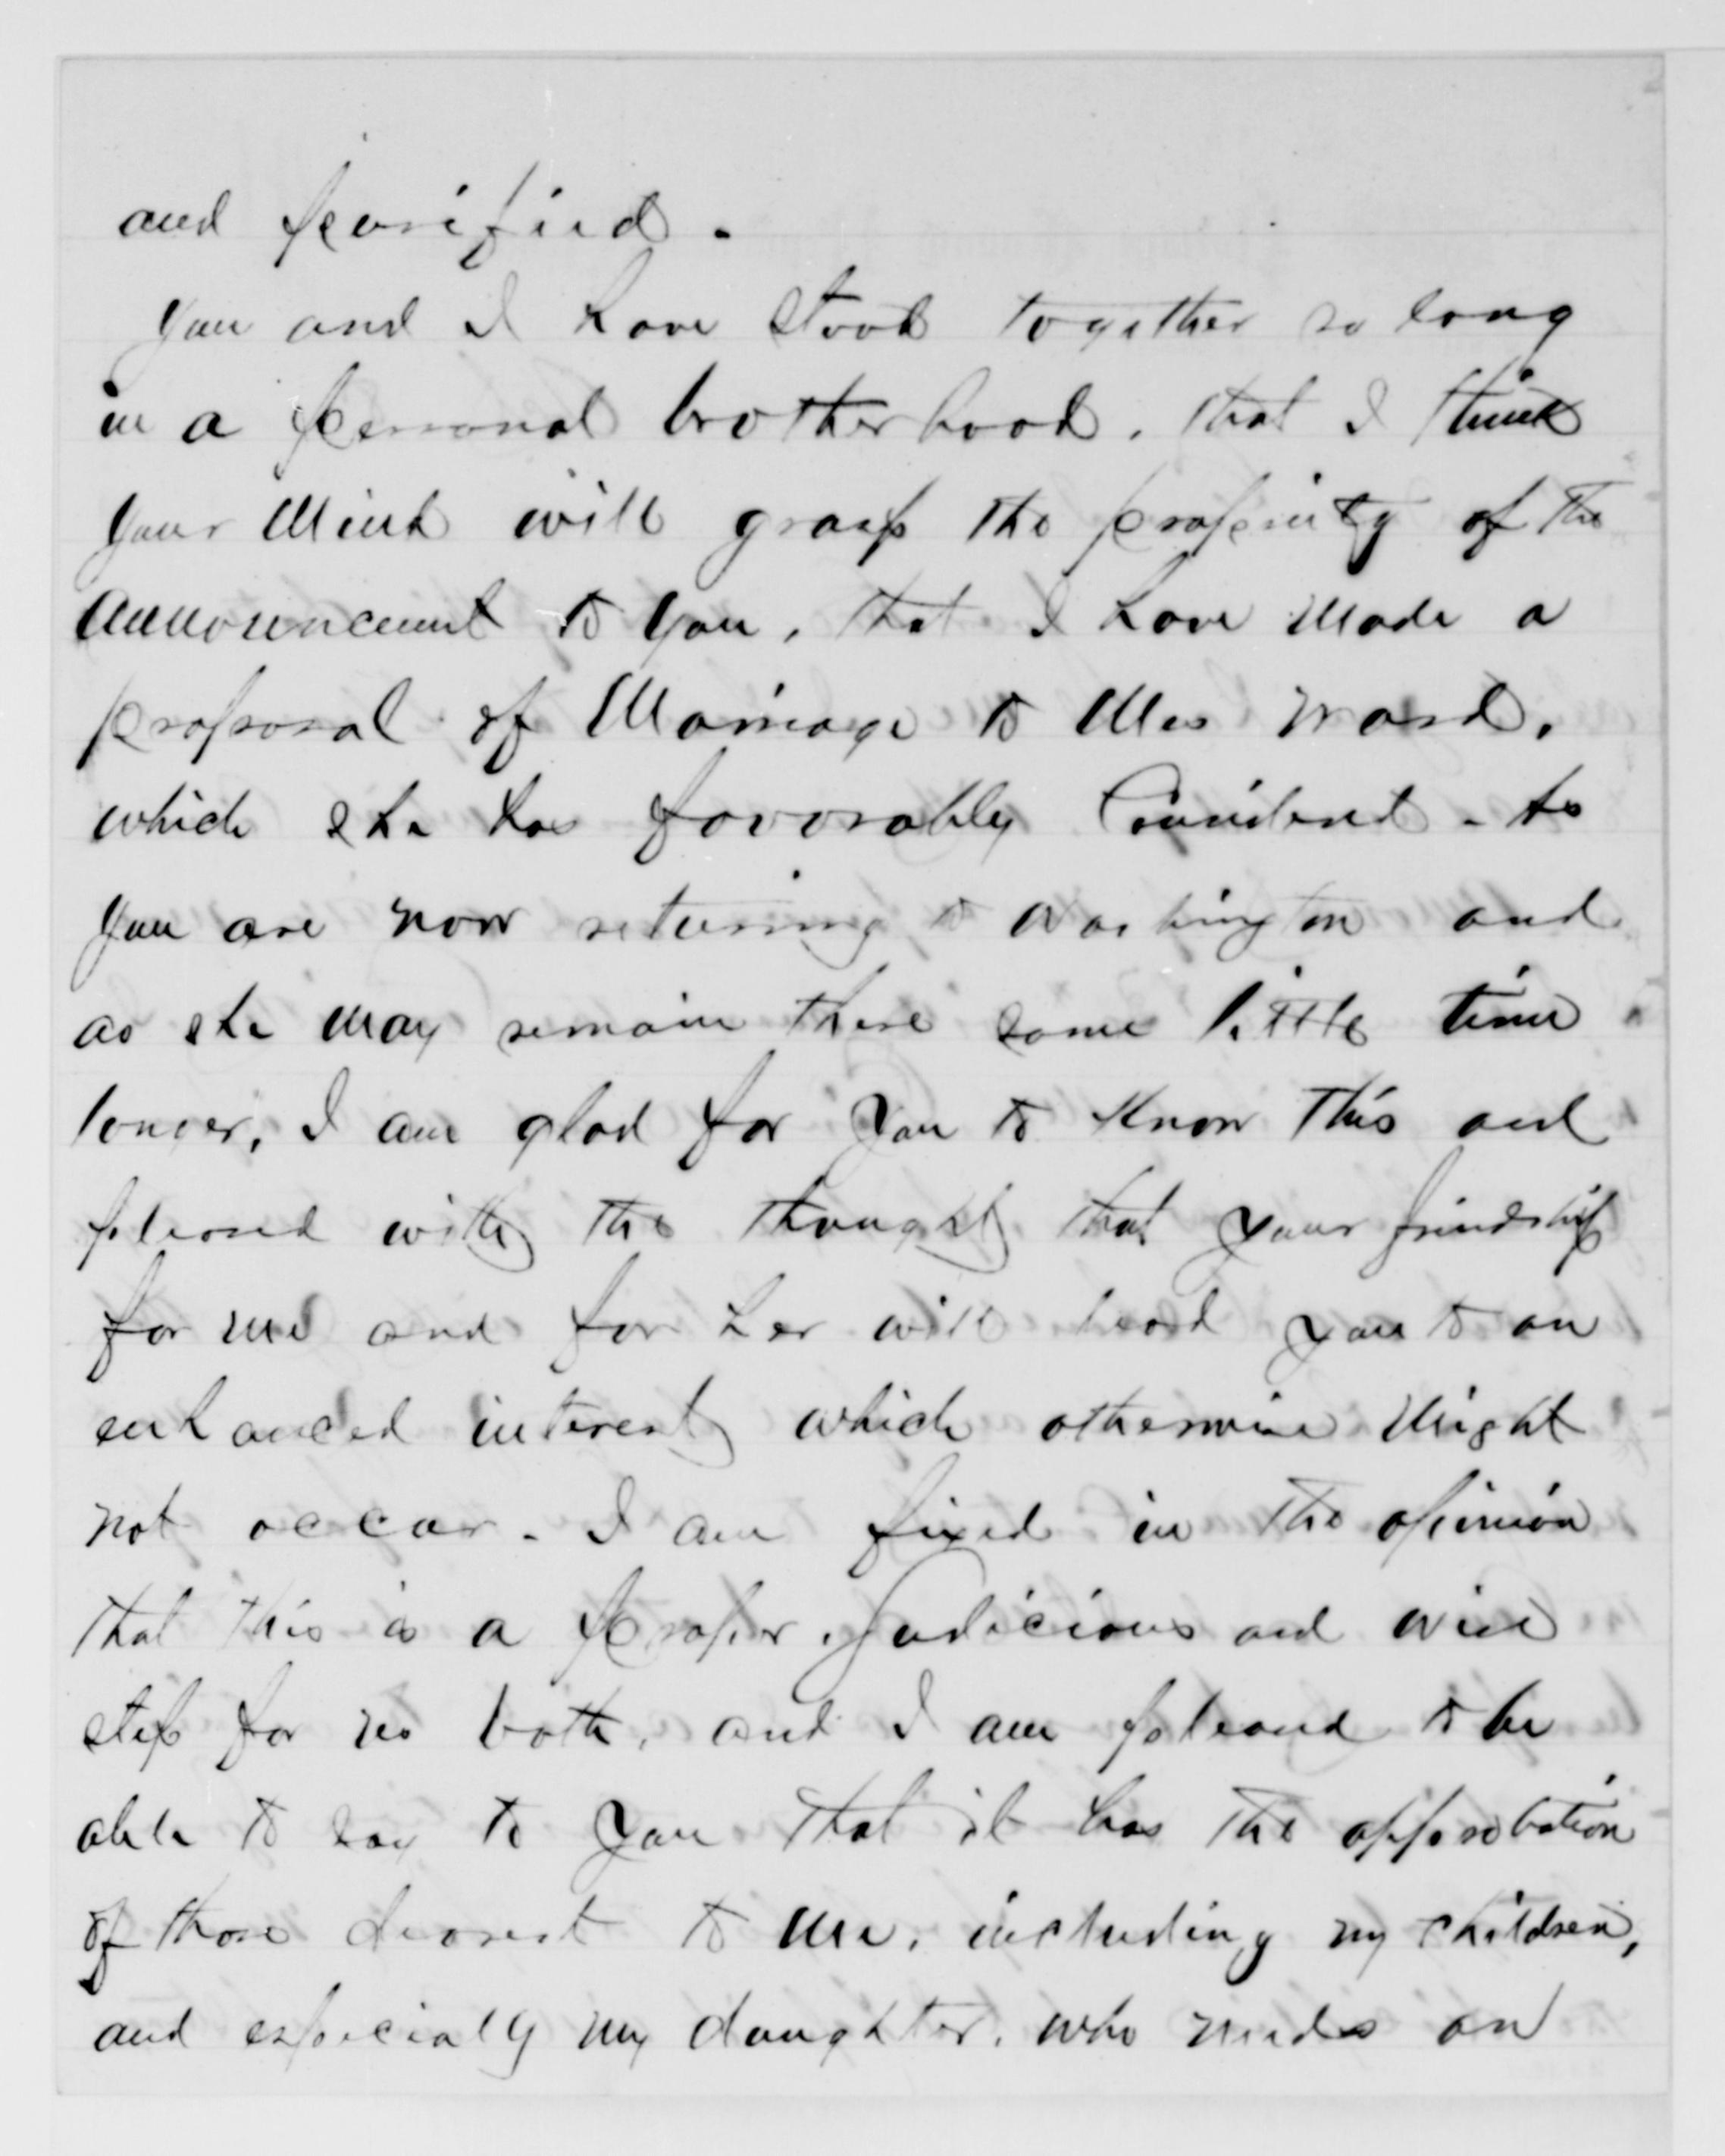 and purified.
You and I have stood together so long
in a personal brotherhood, that I think
your mind will grasp the propriety of the
announcement to you, that I have made a
proposal of Marriage to Mrs Ward,
which she has favorably Considered - As
you are now returning to Washington and
as she may remain there some little time
longer, I am glad for you to know this and
pleased with the thought that your friendship
for me and for her will lead you to an
enhanced interest which otherwise might
not occur. I am fixed in the opinion
that this is a proper, judicious and wise
step for us both, and I am pleased to be
able to say to you that it has the approbation
of those dearest to me, including my children,
and especially my daughter, who needs an